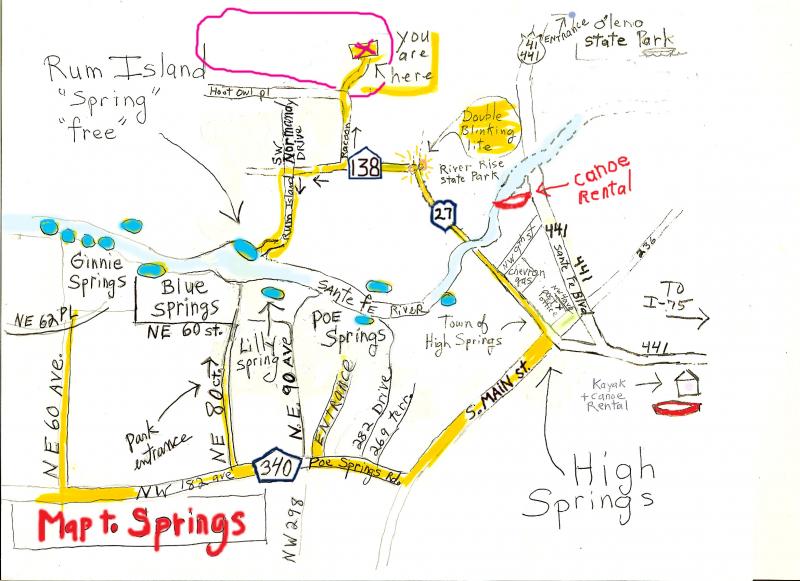 41
441
ENTRANCE
O'leno
State Park
you
are
here
Rum Island
"Spring"
"free"
Hoot Owl pl
SW Normandy
DRIVE
Racoon
138
Double
Blinking
lite
River Rise
state Park
canoe
Rental
27
Rum Island
441
441
Sante Fe Blvd
236
TO
I-75
Chevron
gas
Ginnie
Springs
Blue
Springs
NE 62 PL
NE 60 st.
Sante fe
River
Lilly
spring
POE
Springs
Town of
High Springs
441
Kayak
+ canoe
Rental
NE 60 Ave.
NE 80 ct.
N.E. 90 AVE
ENTRANCE
282 Drive
269 terr.
S. MAIN st.
Park
entrance
340
NW 182 ave
Poe Springs Rd.
High
Springs
Map to Springs
NW 298